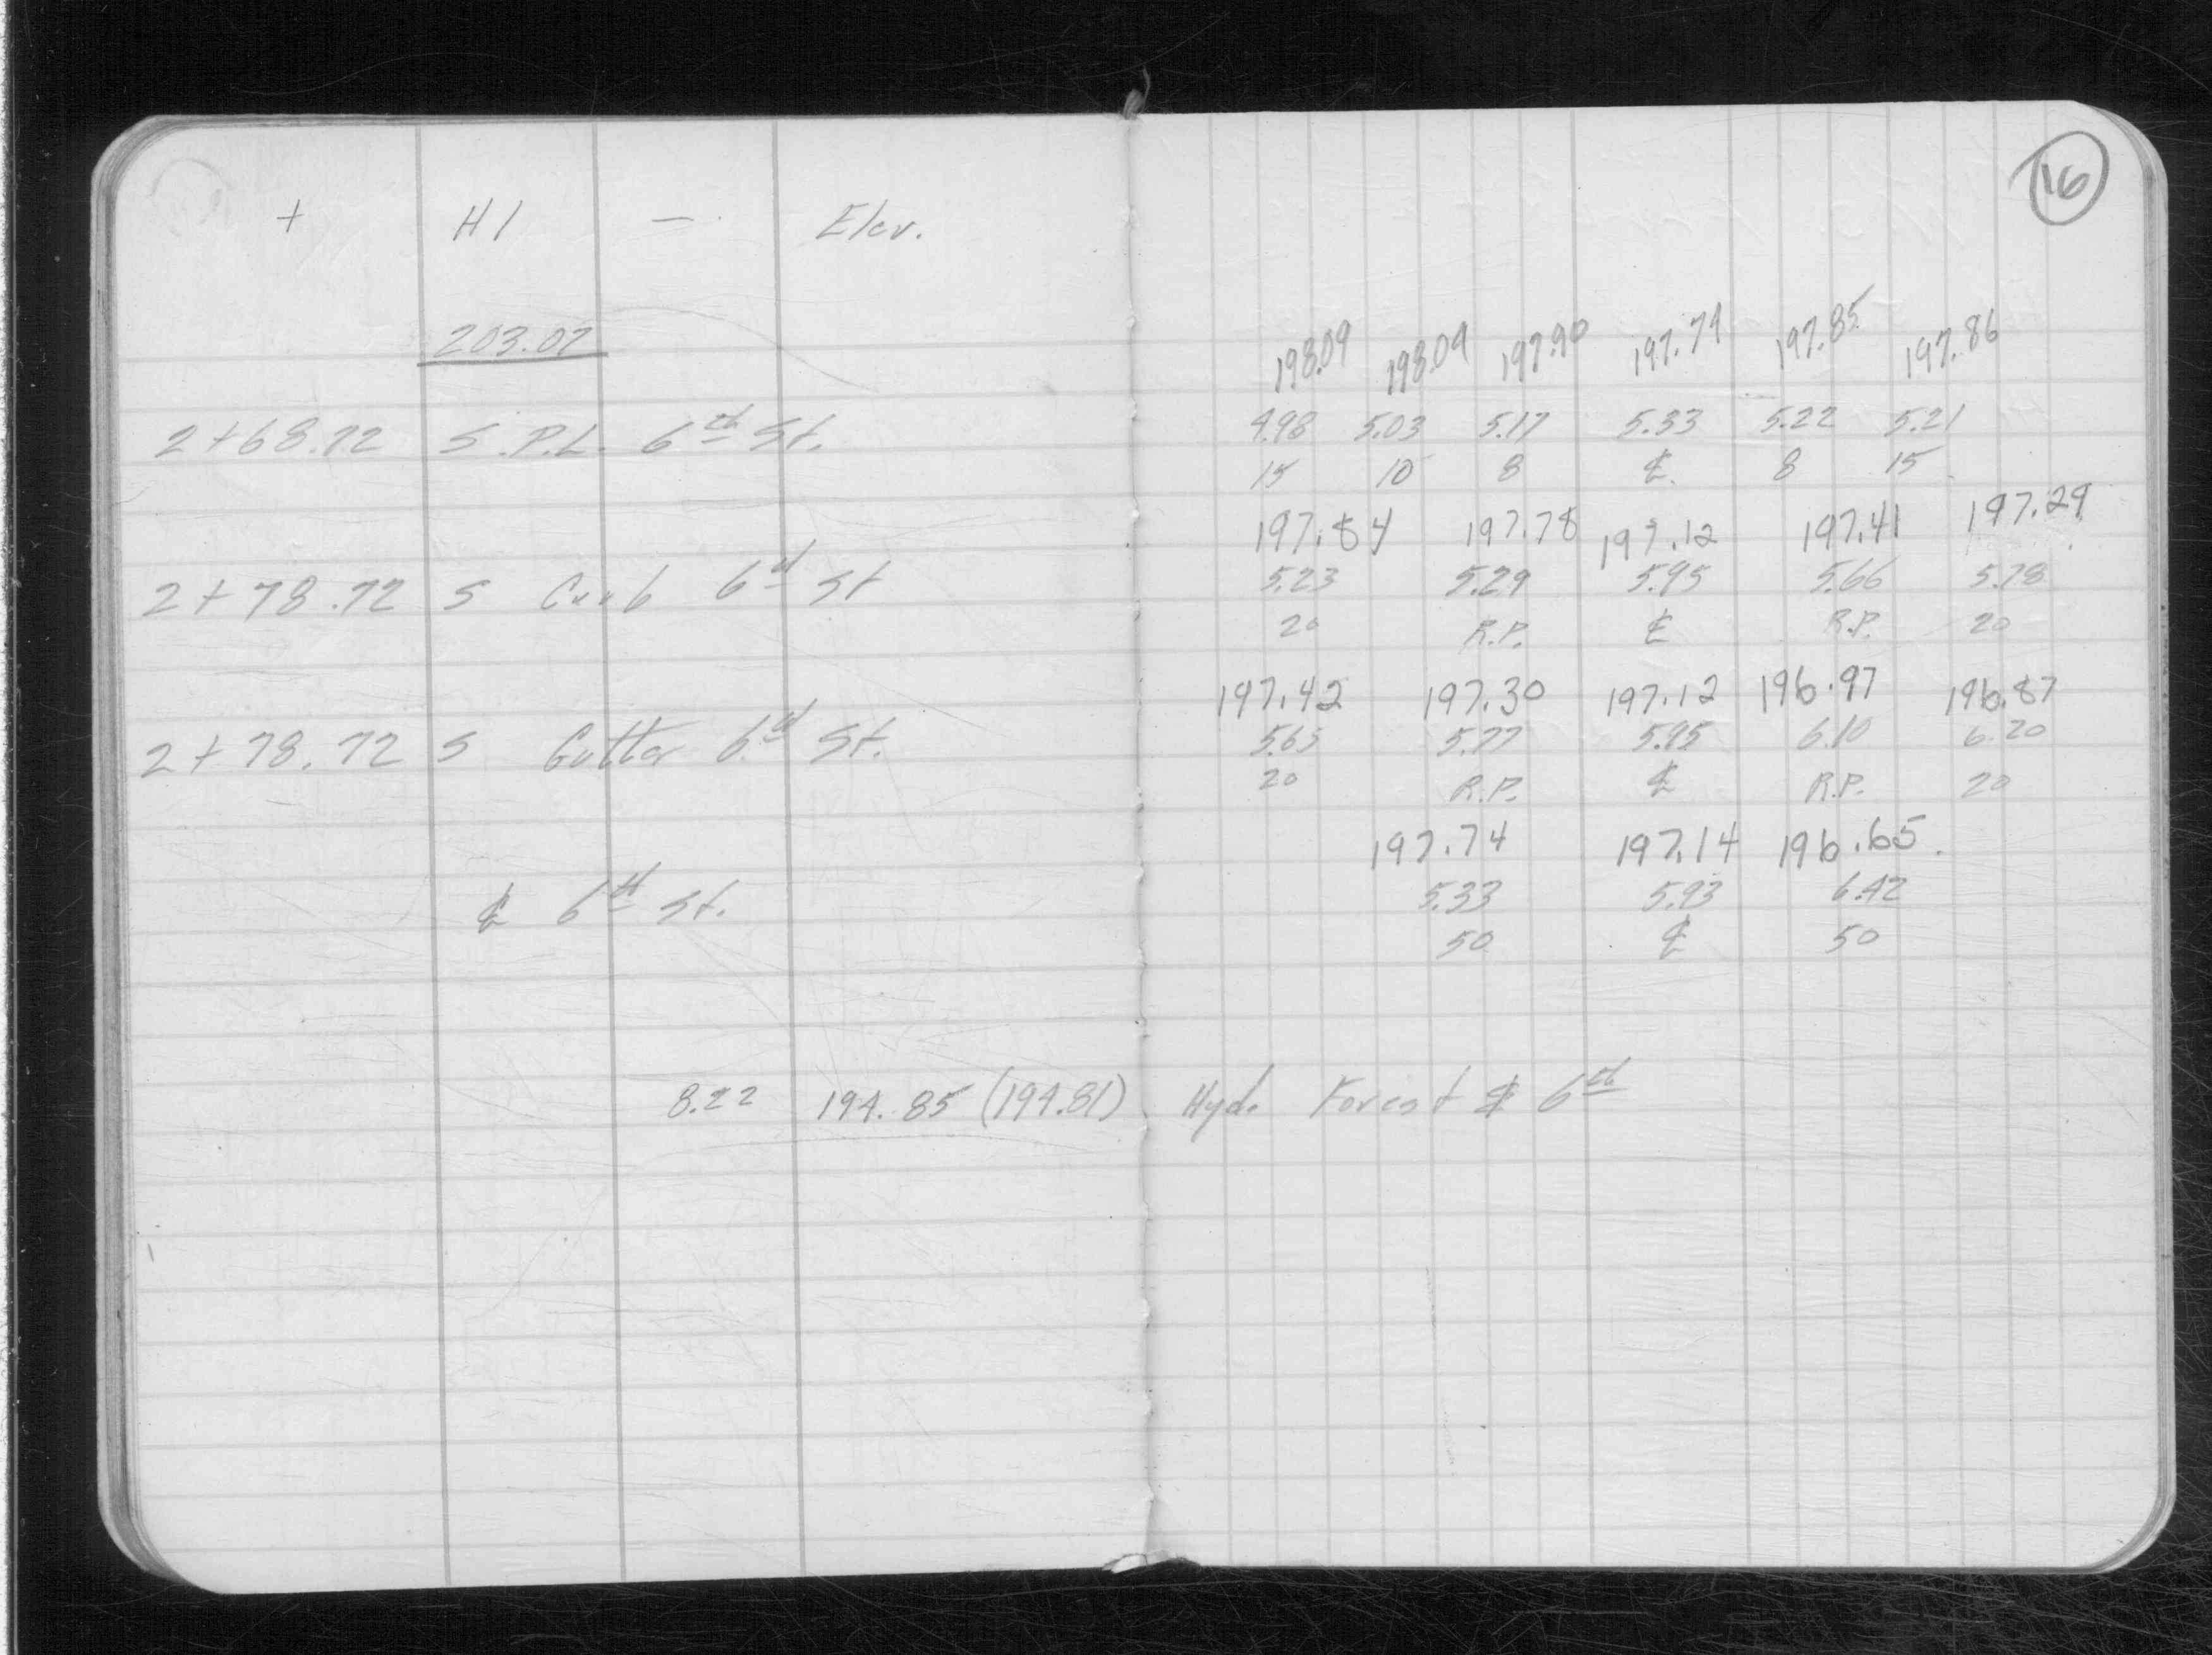 16
+ HI - Elev.
203.07
198.09 198.04 197.90 197.74 197.85 197.86
2+68.72 S.P.L. 6th St. 4.98 5.03 5.17 5.33 5.22 5.21
15 10 8 ℄. 8 15
197.84 197.78 197.12 197.41 197.29
2+78.72 S Curb 6th St 5.23 5.29 5.95 5.66 5.78
20 R.P. ℄ R.P. 20
197.42 197.30 197.12 196.97 196.87
2+78.72 S Gutter 6th St. 5.65 5.77 5.95 6.10 6.20
20 R.P. ℄ R.P. 20
197.74 197.14 196.65
℄ 6th St. 5.33 5.93 6.42
50 ℄ 50
8.22 194.85 (194.81) Hyd. Forest & 6th